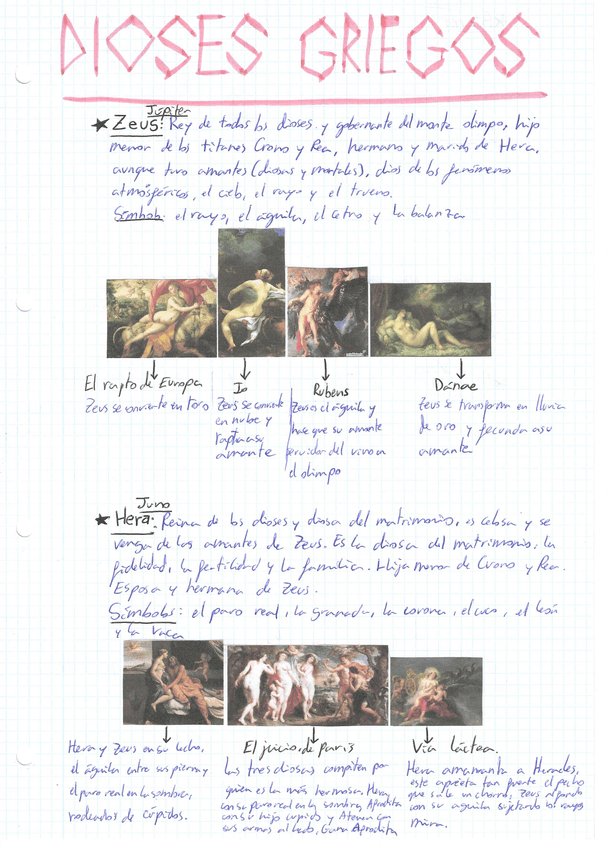 DIOSES GRIEGOS
Júpiter
Zeus: Rey de todos los dioses y gobernante del monte olimpo, hijo
menor de los titanes Crono y Rea, hermano y marido de Hera,
aunque tuvo amantes (diosas y mortales), dios de los fenómenos
atmósféricos, el cielo, el rayo y el trueno.
Símbolo: el rayo, el águila, el cetro y la balanza
El rapto de Europa
Zeus se convierte en toro
Io
Zeus se convierte
en nube y
rapta a su
amante
Rubens
Zeus el águila y
hace que su amante
servidor del vino a
el olimpo
Dánae
Zeus se transforma en lluvia
de oro y fecunda a su
amante
Juno
Hera: Reina de los dioses y diosa del matrimonio, es celosa y se
venga de las amantes de Zeus. Es la diosa del matrimonio, la
fidelidad, la fertilidad y la familia. Hija menor de Crono y Rea.
Esposa y hermana de Zeus.
Símbolos: el pavo real, la granada, la corona, el cuco, el león
y la vaca
Hera y Zeus en su lecho,
el águila entre sus piernas y
el pavo real en la sombra,
rodeados de cúpidos.
El juicio de París
Las tres diosas compiten por
quien es la más hermosa. Hera,
con su pavo real en la sombra, Afrodita
con su hijo cupido y Atenea con
sus armas al lado, Gana Afrodita
Vía láctea.
Hera amamanta a Heracles,
este aprieta tan fuerte el pecho
que sale un chorro, Zeus al fondo
con su aguila sujetando los rayos
mira.